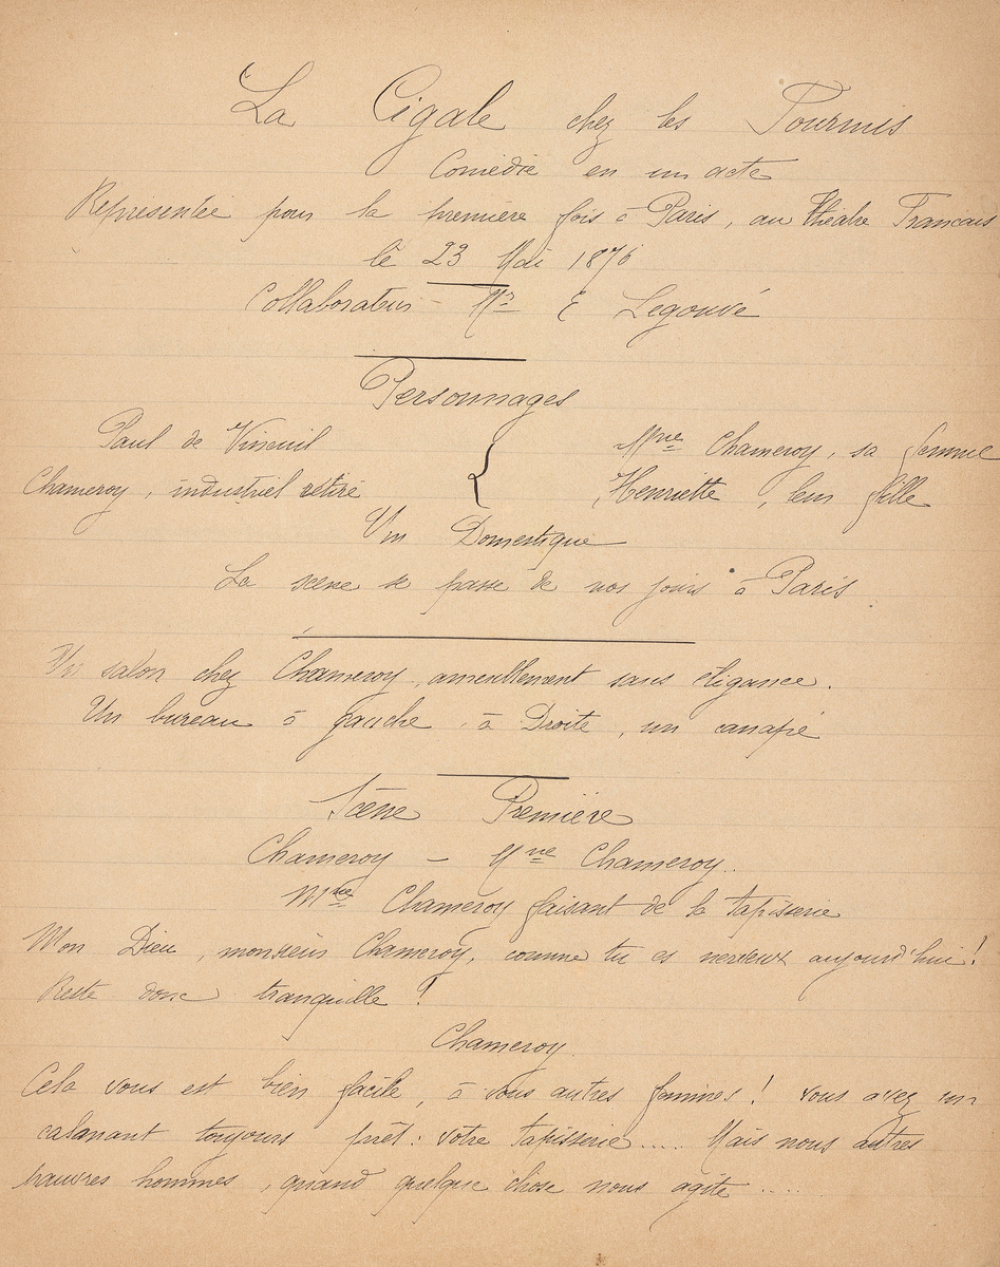 La Cigale chez les Fourmis
Comédie en un acte
Représentée pour la première fois à Paris, au théâtre Francais
le 23 Mai 1876
Collaborateur - Mr E Legouvé
Personnages
Paul de Vineuil { Mme Chameroy, sa femme
Chameroy, industriel retiré Henriette, leur fille
Un Domestique
La scène se passe de nos jours à Paris.
Un salon chez Chameroy, ameublement sans élégance.
Un bureau à gauche, à Droite, un canapé
Scène Première
Chameroy - Mme Chameroy.
Mme Chameroy faisant de la tapisserie
Mon Dieu, monsieur Chameroy, comme tu es nerveux aujourd'hui!
Reste donc tranquille!
Chameroy
Cela vous est bien facile, à vous autres femmes! vous avez un
calmant toujours prêt: votre tapisserie .... Mais nous autres
pauvres hommes, quand quelque chose nous agite ....